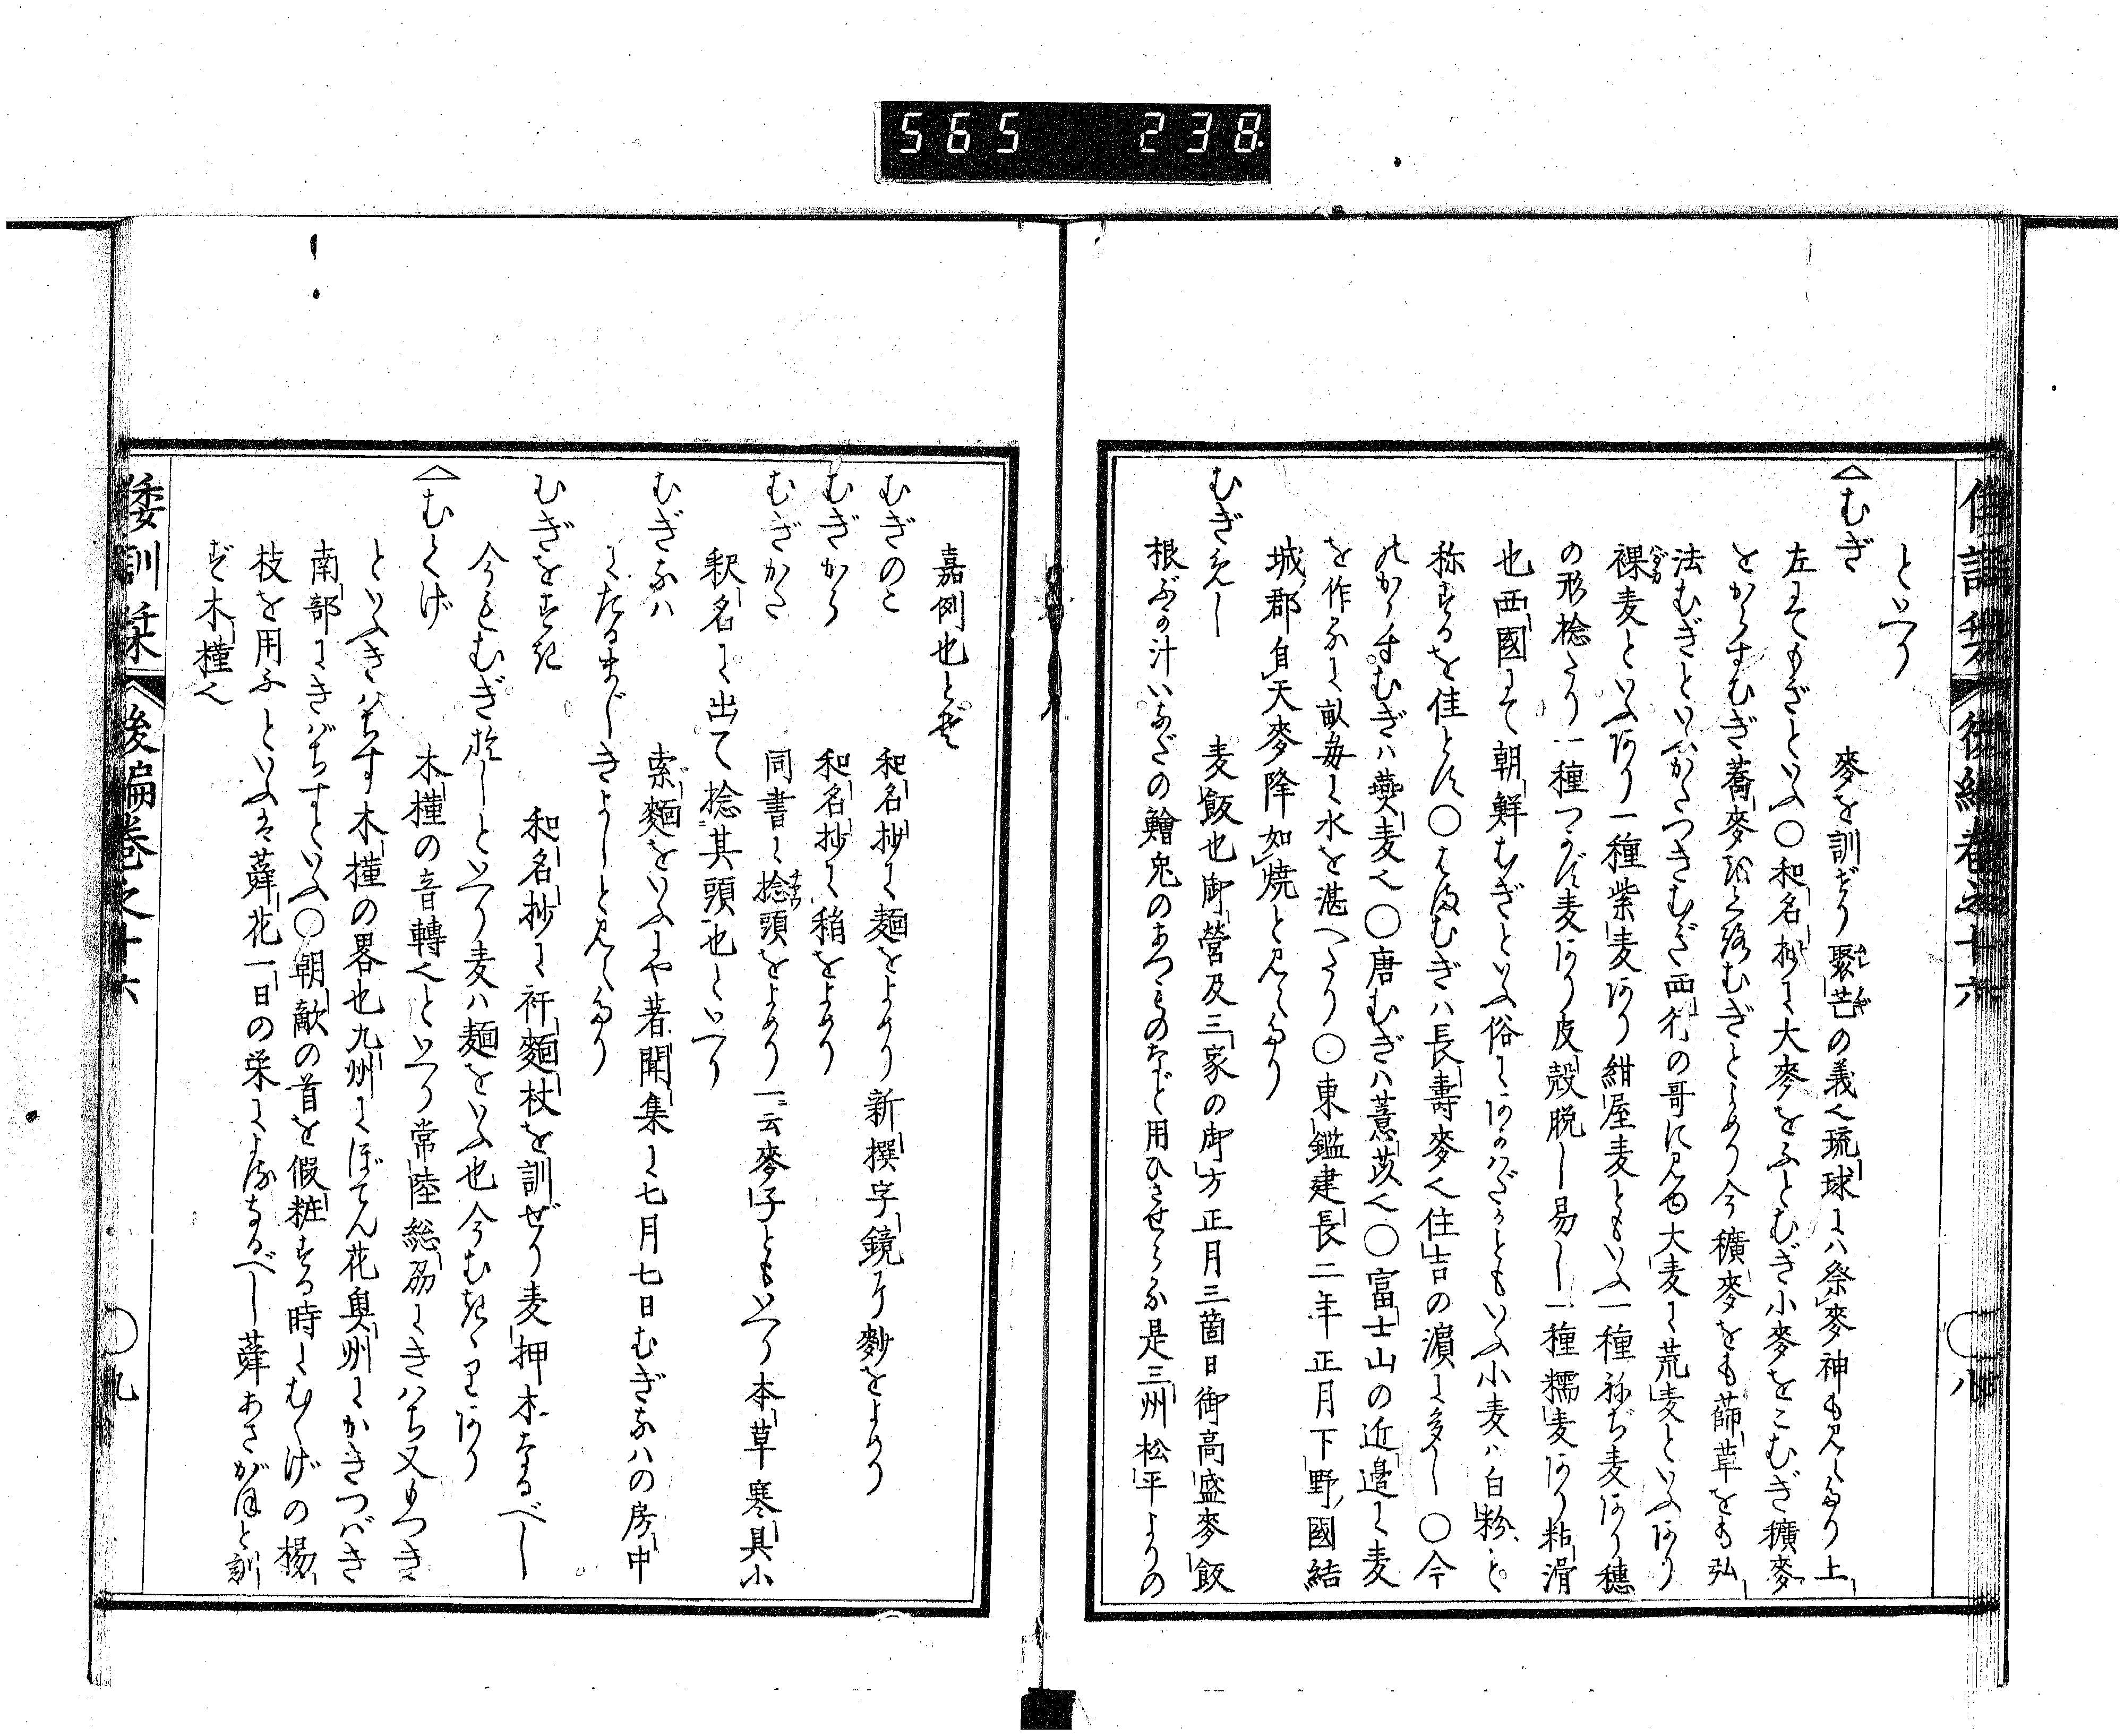 565 238
倭訓栞 後編巻之十六 〇八
といへり
むぎ 麥を訓ぜり聚芒の義也琉球にハ祭麥神も見えたり上
左にてもぎといふ〇和名抄に大麥をふとむぎ小麥をこむぎ穬麥
をからすむぎ蕎麥をむぎとよめり今穬麥をも蒒草をも弘
法むぎといふかたつきむぎ西行の哥に見ゆ大麦に荒麦といふあり
裸麦といふあり一種紫麦あり紺屋麦ともいふ一種ねぢ麦あり穗
の形捻たり一種麦あり皮殼脱し易し一種糯麦あり粘滑
也西國にて朝鮮むぎといふ俗にともいふ小麦ハ白粉と
称するを佳とす〇はまむぎハ長壽麥也住吉の濵に多し〇今
のからすむぎハ燕麦也〇唐むぎハ薏苡也〇富士山の近邉に麦
を作るに畝毎に水を湛へたり〇東鑑建長二年正月下野國結
城郡自天麥降如燒と見えたり
むぎめし 麦飯也御營及三家の御方正月三箇日御高盛麥飯
根ぶか汁いなだの鱠兎のあつものなど用ひさせらる是三州松平よりの
嘉例也とぞ
むぎのこ 和名抄に麺をよめり新撰字鏡に麨をよめり
むぎから 和名抄に䅌をよめり
むぎかた 同書に捻頭をよめり一云麥子ともいへり本草寒具小
釈名に出て捻其頭也といへり
むぎなは 索麺をいふにや著聞集に七月七日むぎなハの房中
にたるまじきよしと見えたり
むぎをすき 和名抄に衦麺杖を訓ぜり麦押木なるべし
今もむぎ押しといへり麦ハ麺をいふ也今むきゝりあり
むくげ 木槿の音轉也といへり常陸総列にきはち又もつき
といふきはちす木槿の畧也九州にぼてん花奥州にかきつばき
南部にきばちすといふ〇朝敵の首を假粧する時にむくげの楊
枝を用ふといふは蕣花一日の栄によるなるべし蕣あさがほと訓
ず木槿也
倭訓栞 後編巻之十六 〇九